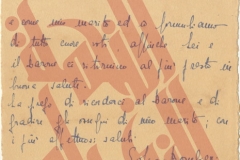 e con mio marito ed a formuliamo
di tutto cuore voti, affinchè Lei e
il barone si ritrovino al più presto in
buona salute.
La prego di ricordarci al barone e di
gradire gli omaggi di mio marito; con
i più affettuosi saluti